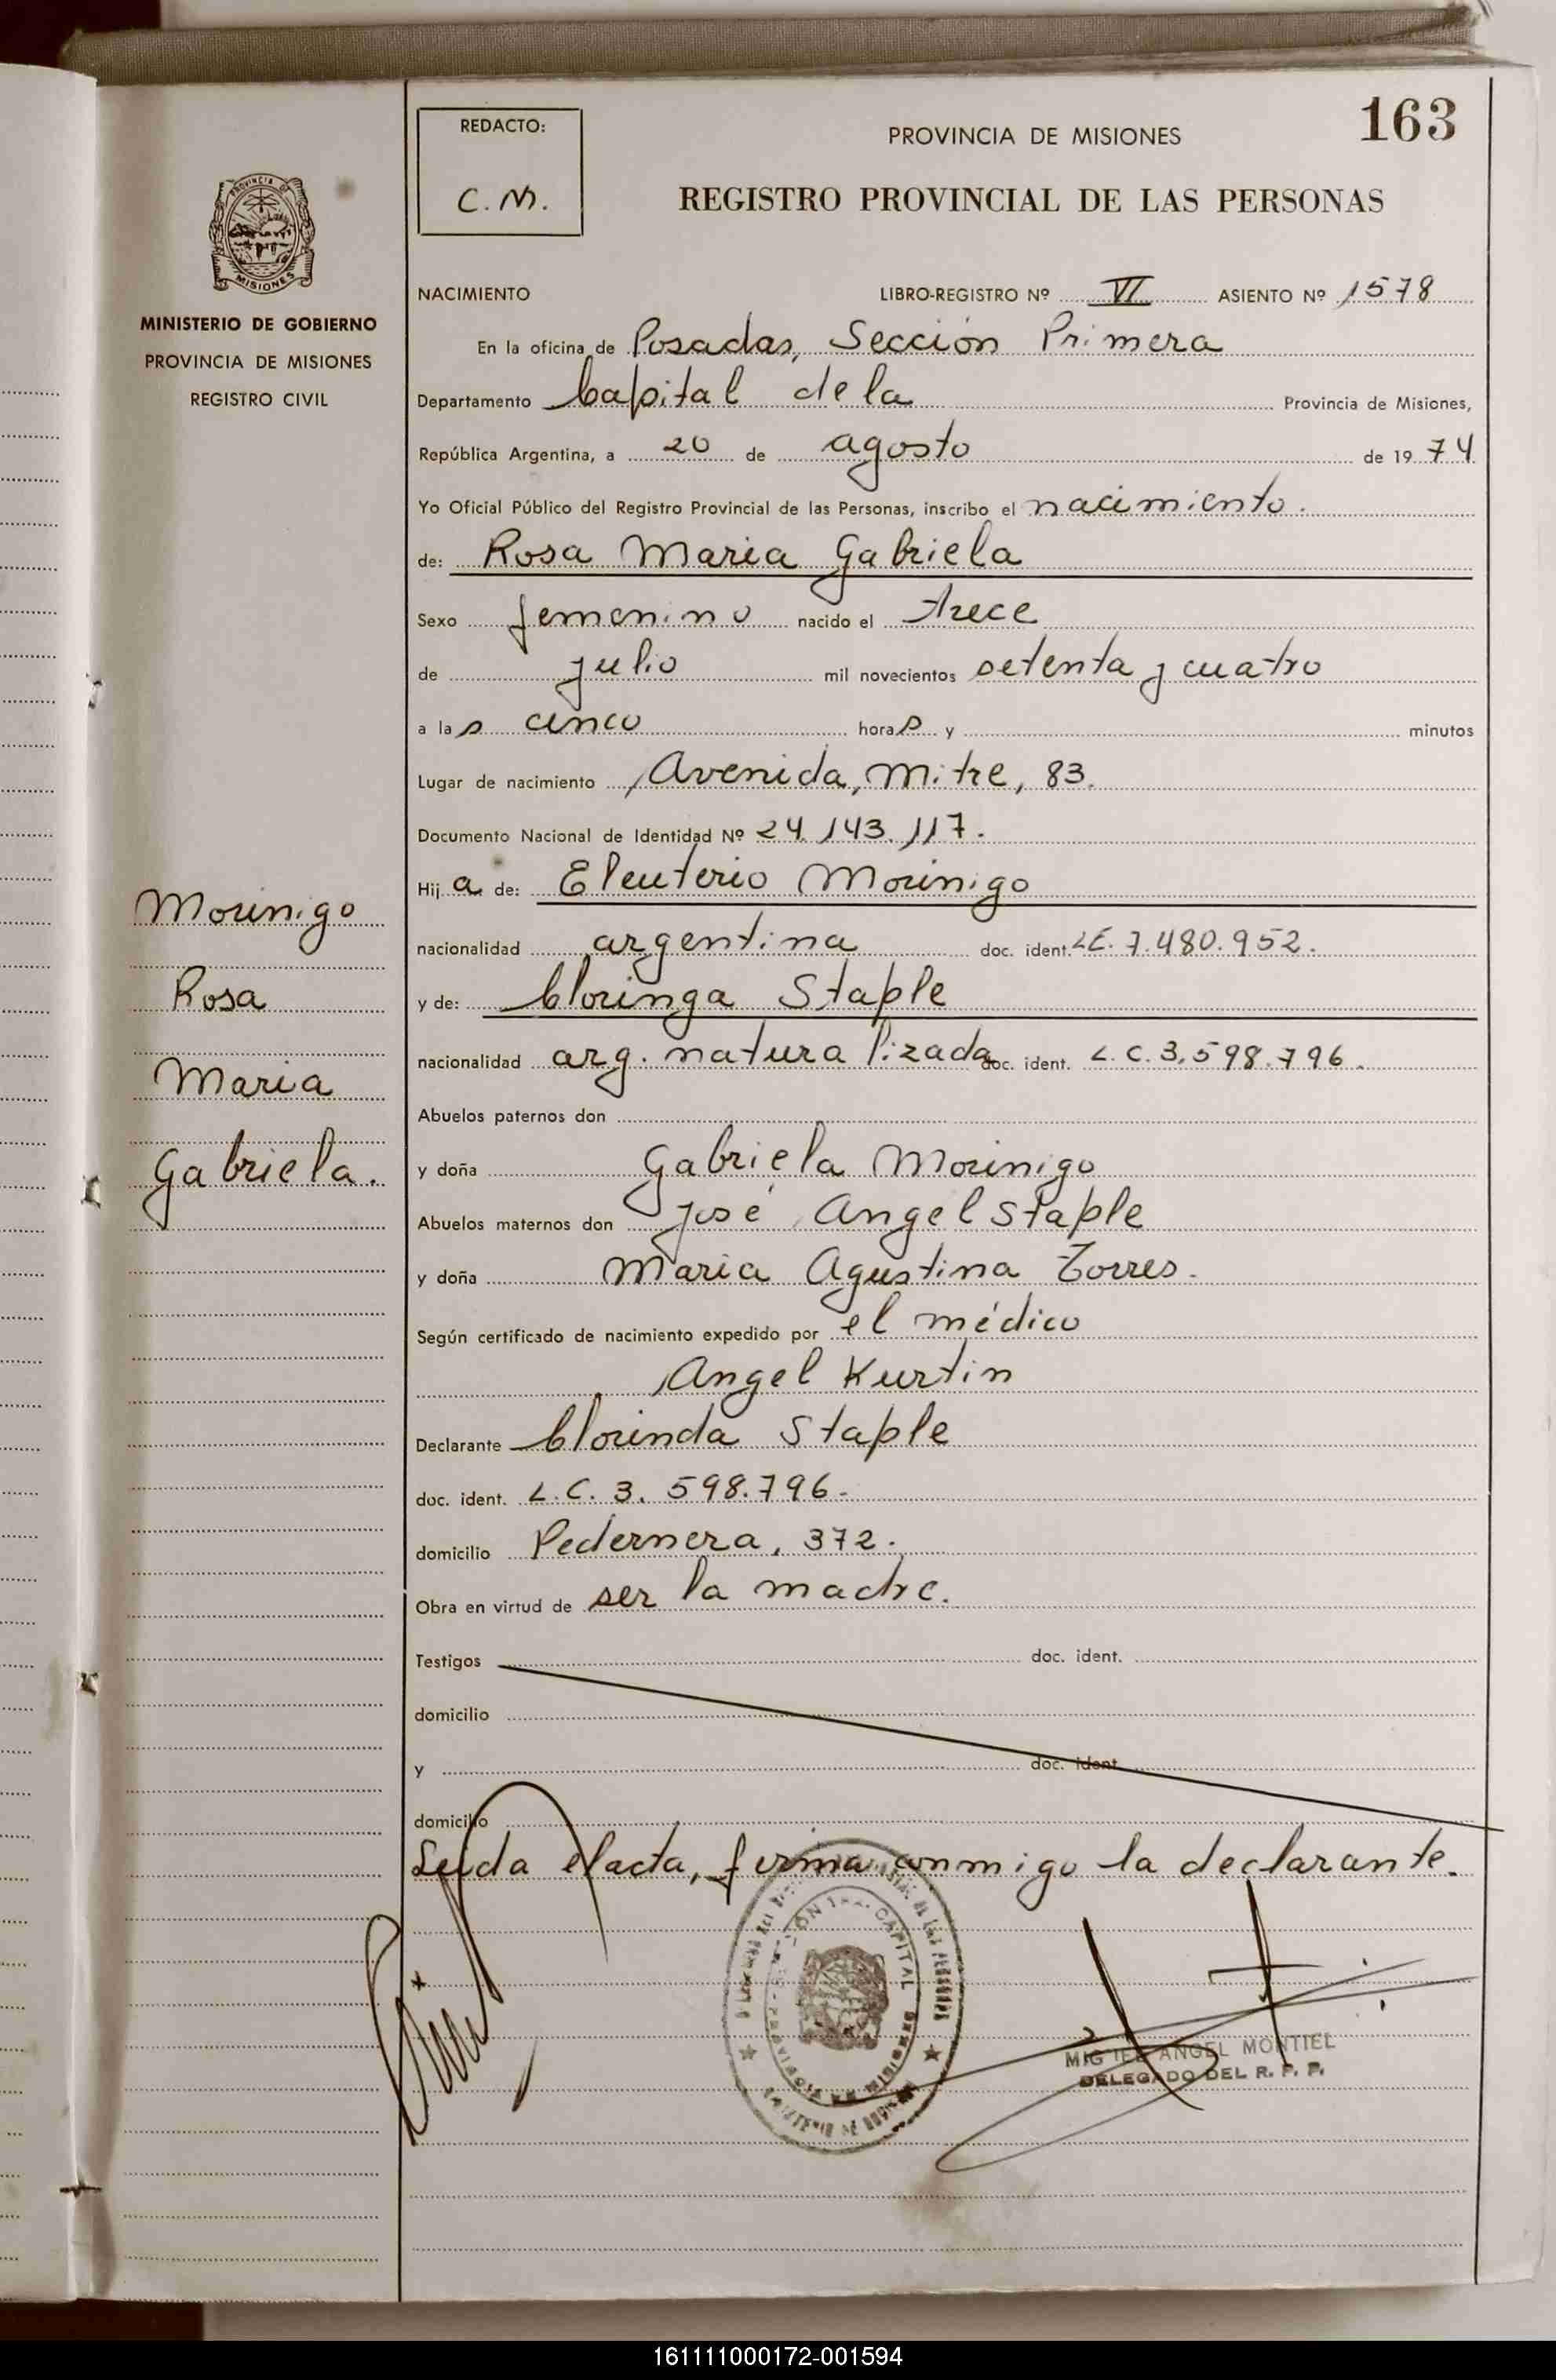 163
REDACTO:
C.M.
PROVINCIA DE MISIONES
REGISTRO PROVINCIAL DE LAS PERSONAS
PROVINCIA DE
MISIONES
MINISTERIO DE GOBIERNO
PROVINCIA DE MISIONES
REGISTRO CIVIL
NACIMIENTO LIBRO-REGISTRO Nº VI ASIENTO Nº 1578
En la oficina de Posadas, Sección Primera
Departamento Capital de la Provincia de Misiones,
República Argentina, a 20 de agosto de 1974
Yo Oficial Público del Registro Provincial de las Personas, inscribo el nacimiento.
de: Rosa Maria Gabriela
Sexo femenino nacido el trece
de julio mil novecientos setenta y cuatro
a las cinco horas y minutos
Lugar de nacimiento Avenida, Mitre, 83.
Documento Nacional de Identidad Nº 24.143.117.
Hija de: Eleuterio Morinigo
nacionalidad argentina doc. ident. L.E. 7.480.952.
y de: Cloringa Staple
nacionalidad arg. naturalizada doc. ident. L.C. 3.598.796.
Abuelos paternos don
y doña Gabriela Morinigo
Abuelos maternos don José Angel Staple
y doña Maria Agustina Torres.
Según certificado de nacimiento expedido por el médico
Angel Kurtin
Declarante Clorinda Staple
doc. ident. L.C. 3.598.796.
domicilio Pedernera, 372.
Obra en virtud de ser la madre.
Testigos doc. ident.
domicilio
y doc. ident.
domicilio
Leida el acta, firma conmigo la declarante.
Morinigo
Rosa
Maria
Gabriela.
CAPITAL
MIGUEL ANGEL MONTIEL
DELEGADO DEL R. P. P.
161111000172-001594